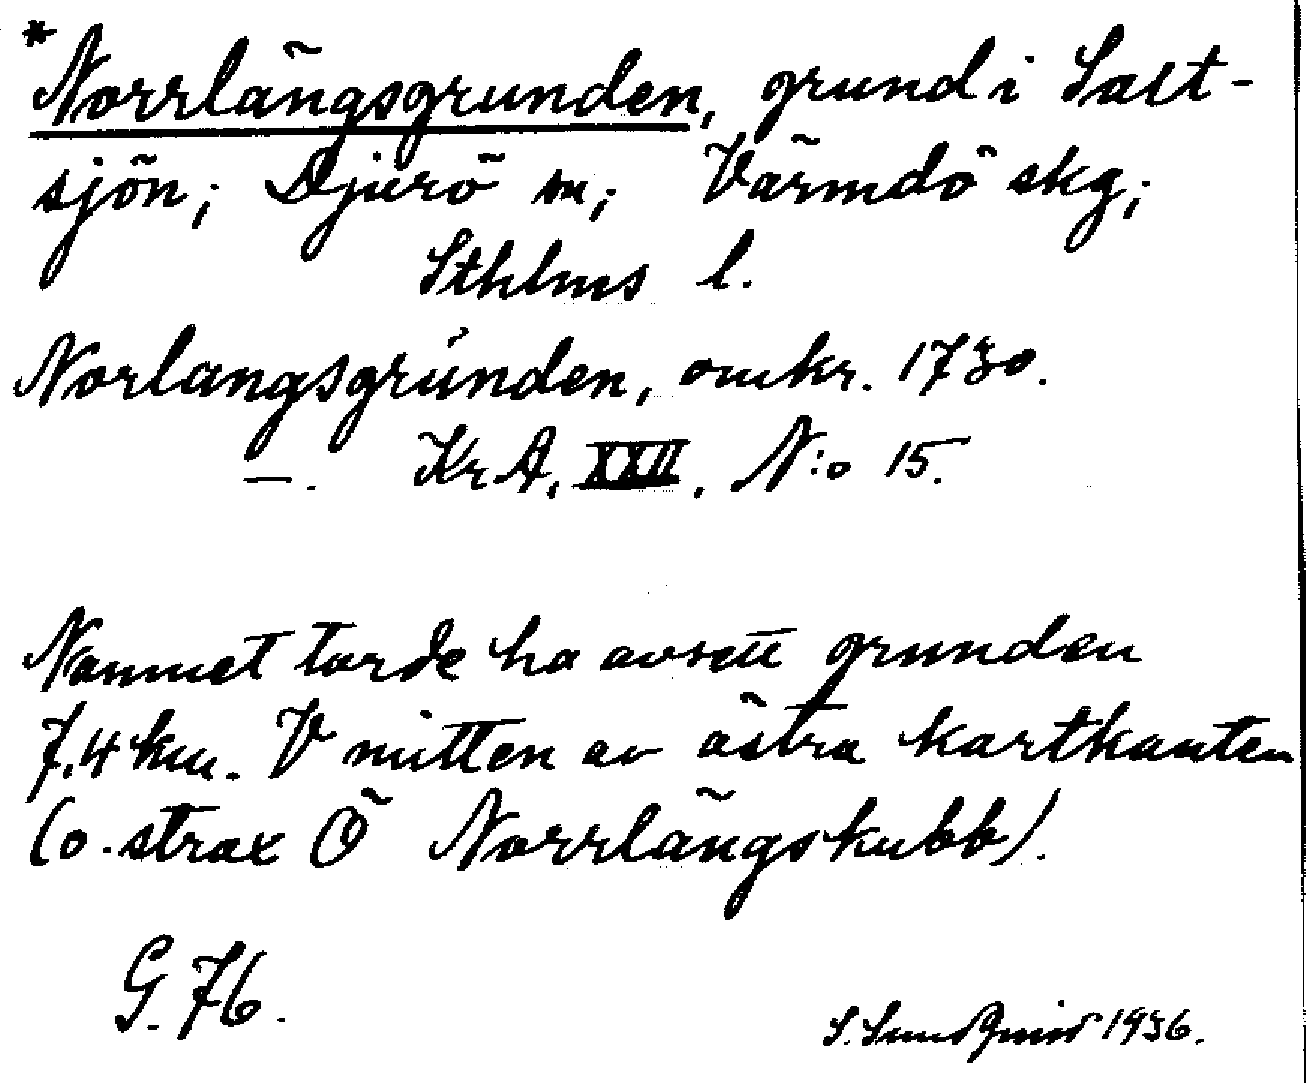 *Norrlängsgrunden, grund i Salt-
sjön; Djurö sn; Värmdö skg;
Sthlms l.
Norlangsgrunden, omkr. 1730.
—. Kr A, XXII, N:o 15.
Namnet torde ha avsett grunden
7,4 km. V mitten av östra kartkanten
(o. strax Ö Norrlängskubb).
G. 76.
S. Sundquist 1936.